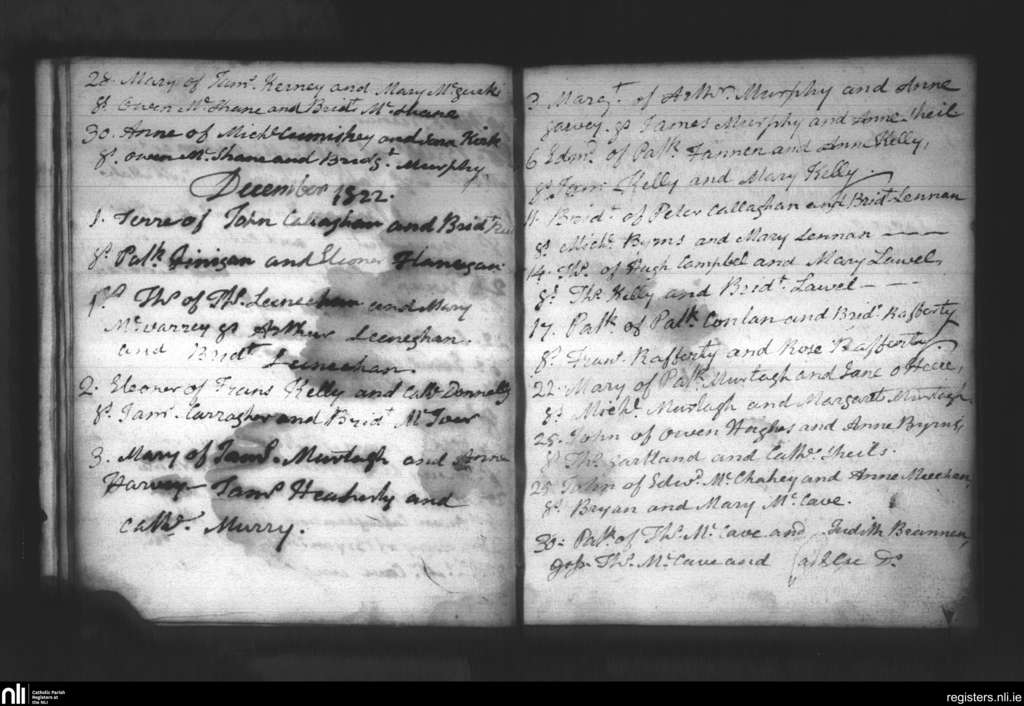 28. Mary of Jams. Kerney and Mary McGurk
gs. Owen McShane and Bridt. McShane
30. Anne of Michl. Cumiskey and Kirk
gs. Owen McShane and Bridgt. Murphy,
December 1822.
1. Terre of John Callaghan and Bridt.
gs. Patk. Finigan and Eleoner Flanegan
1st. Ths. of Ths. Leeneghan and Mary
McVarrey gs Arthur Leeneghan
and Bridt.
Leeneghan.
2. Eleoner of Frans Kelly and Cathe. Donnelly
gs. Jams. Carragher and Bridt. McIver
3. Mary of Jams. Murtagh and Anne
Harvey Jams. Heatherly and
Cathe. Murry.
3. Margt. of Arthr. Murphy and Anne
garvey. gs James Murphy and Anne Sheil
6 Edmd. of Patk. Fannen and Anne Kelly,
gs Jams Kelly and Mary Kelly.
11. Bridt. of Peter Callaghan and Bridt. Lennan
gs. Michl. Byrns and Mary Lennan
14. Ths. of Hugh Campbel and Mary Lawel,
gs. Ths. Kelly and Bridt. Lawel
17. Patk. of Patk. Conlan and Bridt. Rafferty
gs. Frans. Rafferty and Rose Rafferty.
22. Mary of Patk. Murtagh and Jane o Heere,
gs. Michl. Murtagh and Margaret Murtagh.
25. John of Owen Hughes and Anne Byrns,
gs. Ths. Gartland and Cathe. Sheils.
25. John of Edwd. McChahey and Anne Meechan,
gs. Bryan and Mary McCave.
30: Patk. of Ths. McCave and Judith Brannen,
gosp. Ths. McCave and Do.
nli
Catholic Parish
Registers at
the NLI
registers.nli.ie